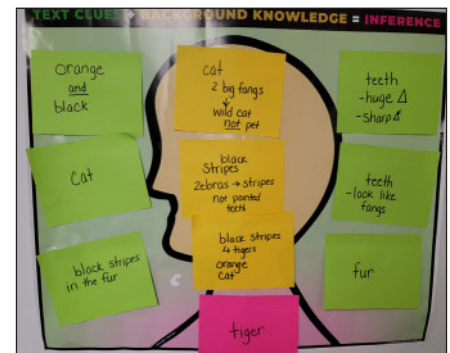 TEXT CLUES + BACKGROUND KNOWLEDGE = INFERENCE
orange
and
black
cat
black stripes
in the fur
cat
2 big fangs
wild cat
not pet
black
stripes
zebras → stripes
not pointed
teeth
black stripes
4 tigers
orange
cat
tiger
teeth
-huge
-sharp
teeth
-look like
fangs
fur